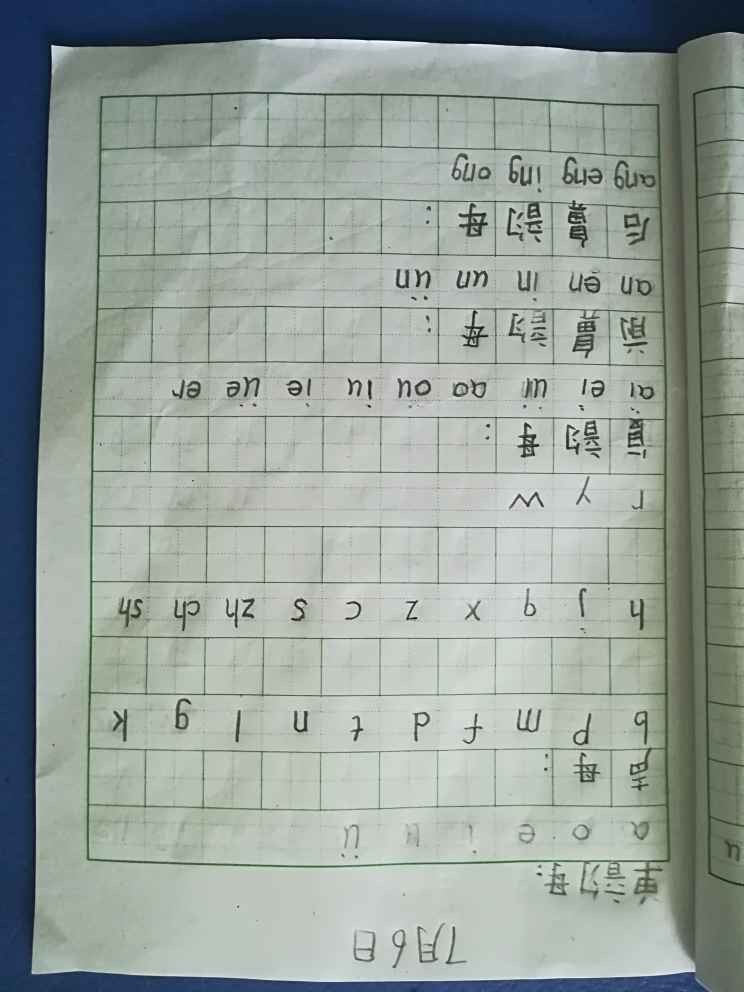 7月6日
单韵母:
a o e i u ü
声母:
b p m f d t n l g k
h j q x z c s zh ch sh
r y w
复韵母:
ai ei ui ao ou iu ie üe er
前鼻韵母:
an en in un ün
后鼻韵母:
ang eng ing ong